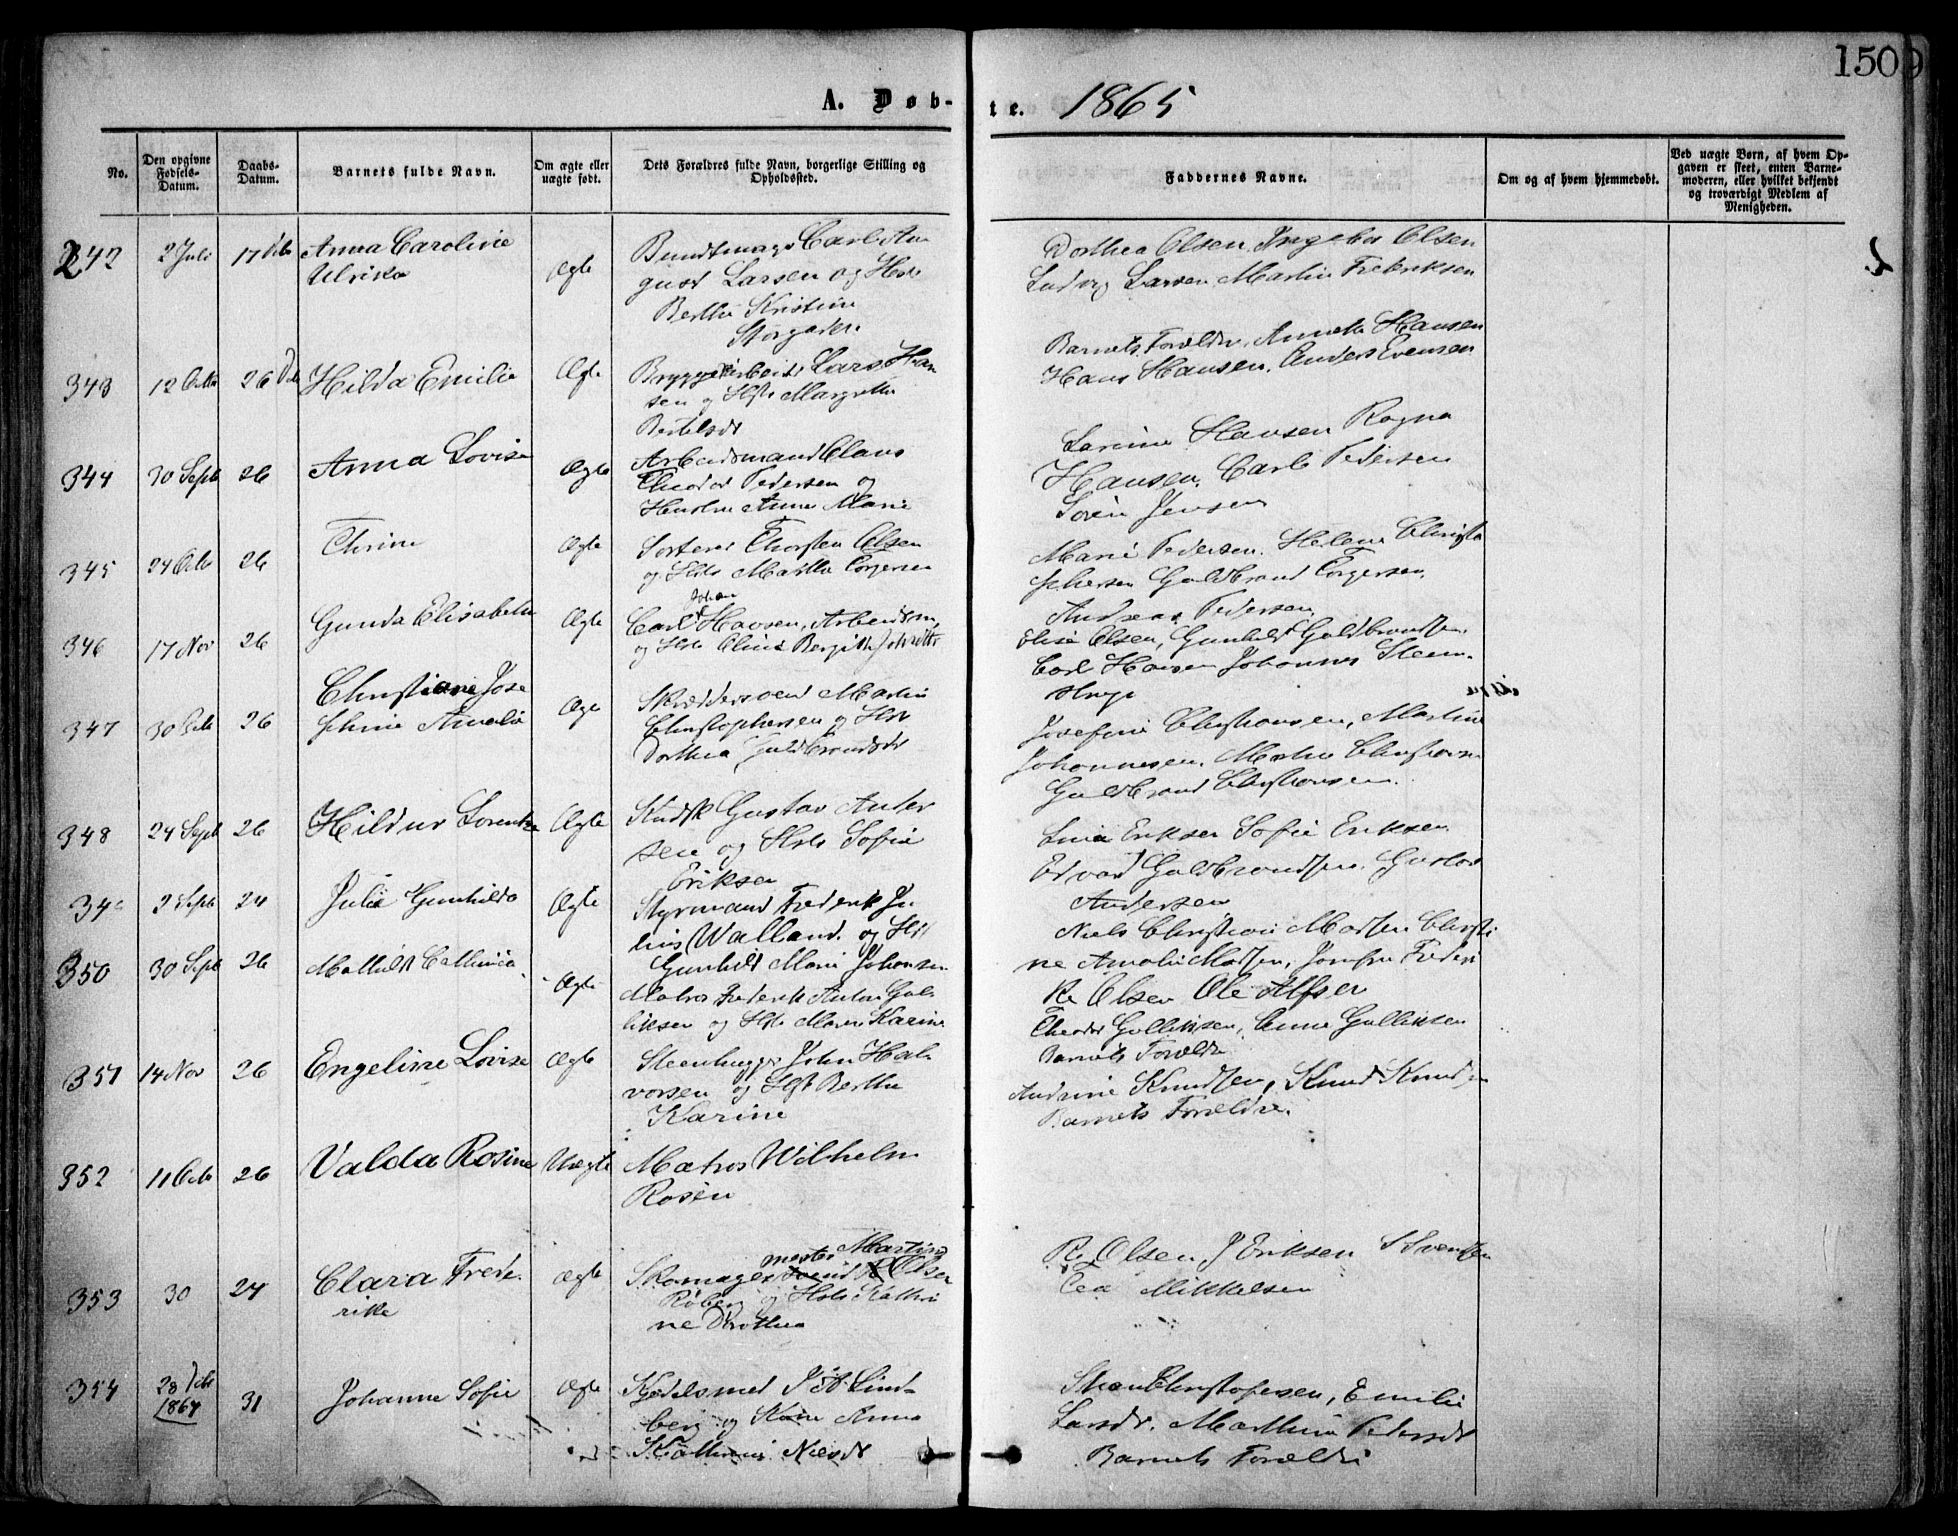 150
A. Døb-
te. 1865
No.
Den opgivne
Fødsels-
Datum.
Daabs-
Datum.
Barnets fulde Navn.
Om ægte eller
uægte født.
Dets Forældres fulde Navn, borgerlige Stilling og
Opholdssted.
Faddernes Navne.
Om og af hvem hjemmedøbt.
Ved uægte Børn, af hvem Op-
gaven er skeet, enten Barne-
moderen, eller hvilket bekjendt
og troværdigt Medlem af
Menigheden.
342 2 Juli 17 Anna Caroline
Ulrika
Ægte
Carl Au
gust Larsen og
Berthe Kristine
Storgaden
Dorthea Olsen Ingebor Olsen
Ludvig Larsen Martin Frederiksen
343 12 Octb 26 Hilda Emilie
Ægte
Bryggeriarbeid Lars Han
sen og Hst Margrethe
Bertelsdt
Barnets Forældre, Annette Hansen
Hans Hansen, Anders Evensen
344 30 Sept 26 Anna Lovise
Ægte
Arbeidsmand Claus
Theodor Pedersen og
Hustru Anne Marie
Larine Hansen Ragna
Hansen, Carl Pedersen
Søren Jensen
345 24 Octb 26 Thrine
Ægte
Thorsten Olsen
og Hst Marthe Torgersen
Marie Pedersen. Helene Christo
phersen Guldbrand Torgersen,
Andreas Pedersen,
346 17 Nov 26 Gunda Elisabeth
Ægte
Johan
Carl Hansen, Arbeidsm,
og Hst
Elise Olsen, Gunhild Guldbrandsen,
Carl Hansen Johannes Steen-
347 30 26 Christiane Jose
phine Amalie
Æge
Skræddersvend Martin
Christophersen og Hst
Dorthea Guldbrandsdt
Josefine Christiansen, Martine
Johannesen, Marthe Christians
Guldbrand Christiansen.
348 24 Sept 26 Hildur Lorentze
Ægte
Kudsk Gustav Ander
sen og Hst Sofie
Eriksen
Lina Eriksen Sofie Eriksen
Edvard Guldbrandsen. Gustav
Andersen
34 2 Sept 24 Julie Gunhilda
Ægte
Styrmand Frederik Ju
lius Walland. og Hst
Gunhild Marie Johansen
Niels Christian Madsen Christi
ne Amalie Madsen, Jomfru Frederi
ke Olsen Ole Alfsen
350 30 Sept 26 Mathild
Ægte
Matros Frederik Anton Gul
liksen og Hst Maren Karine
Theodor Gulliksen, Anne Gulliksen
Barnets Forældre
351 14 Nov 26 Engeline Lovise
Ægte
Steenhugger John Hal
vorsen og Hst Berthe
Karine
Andrine Knudsen, Knud Knudsen
Barnets Forældre.
352 11 Octb 26 Valda Rosine
Uægte
Matros Wilhelm
Rosen
353 30 24 Clara Frede
rike
Ægte
mester Martin
Skomager svend Olsen
Røberg og Hst Kathri
ne Dorthea
R. Olsen, J Eriksen S Svendsen
Tea Mikkelsen
354 28 Dcbr
1864
31 Johanne Sofie
Ægte
Kjedelsmed Lind-
berg og Kone Anna
Kathrine Nielsdt
Christofersen, Emilie
Larsdt. Marthine Pedersdt
Barnets Forældre